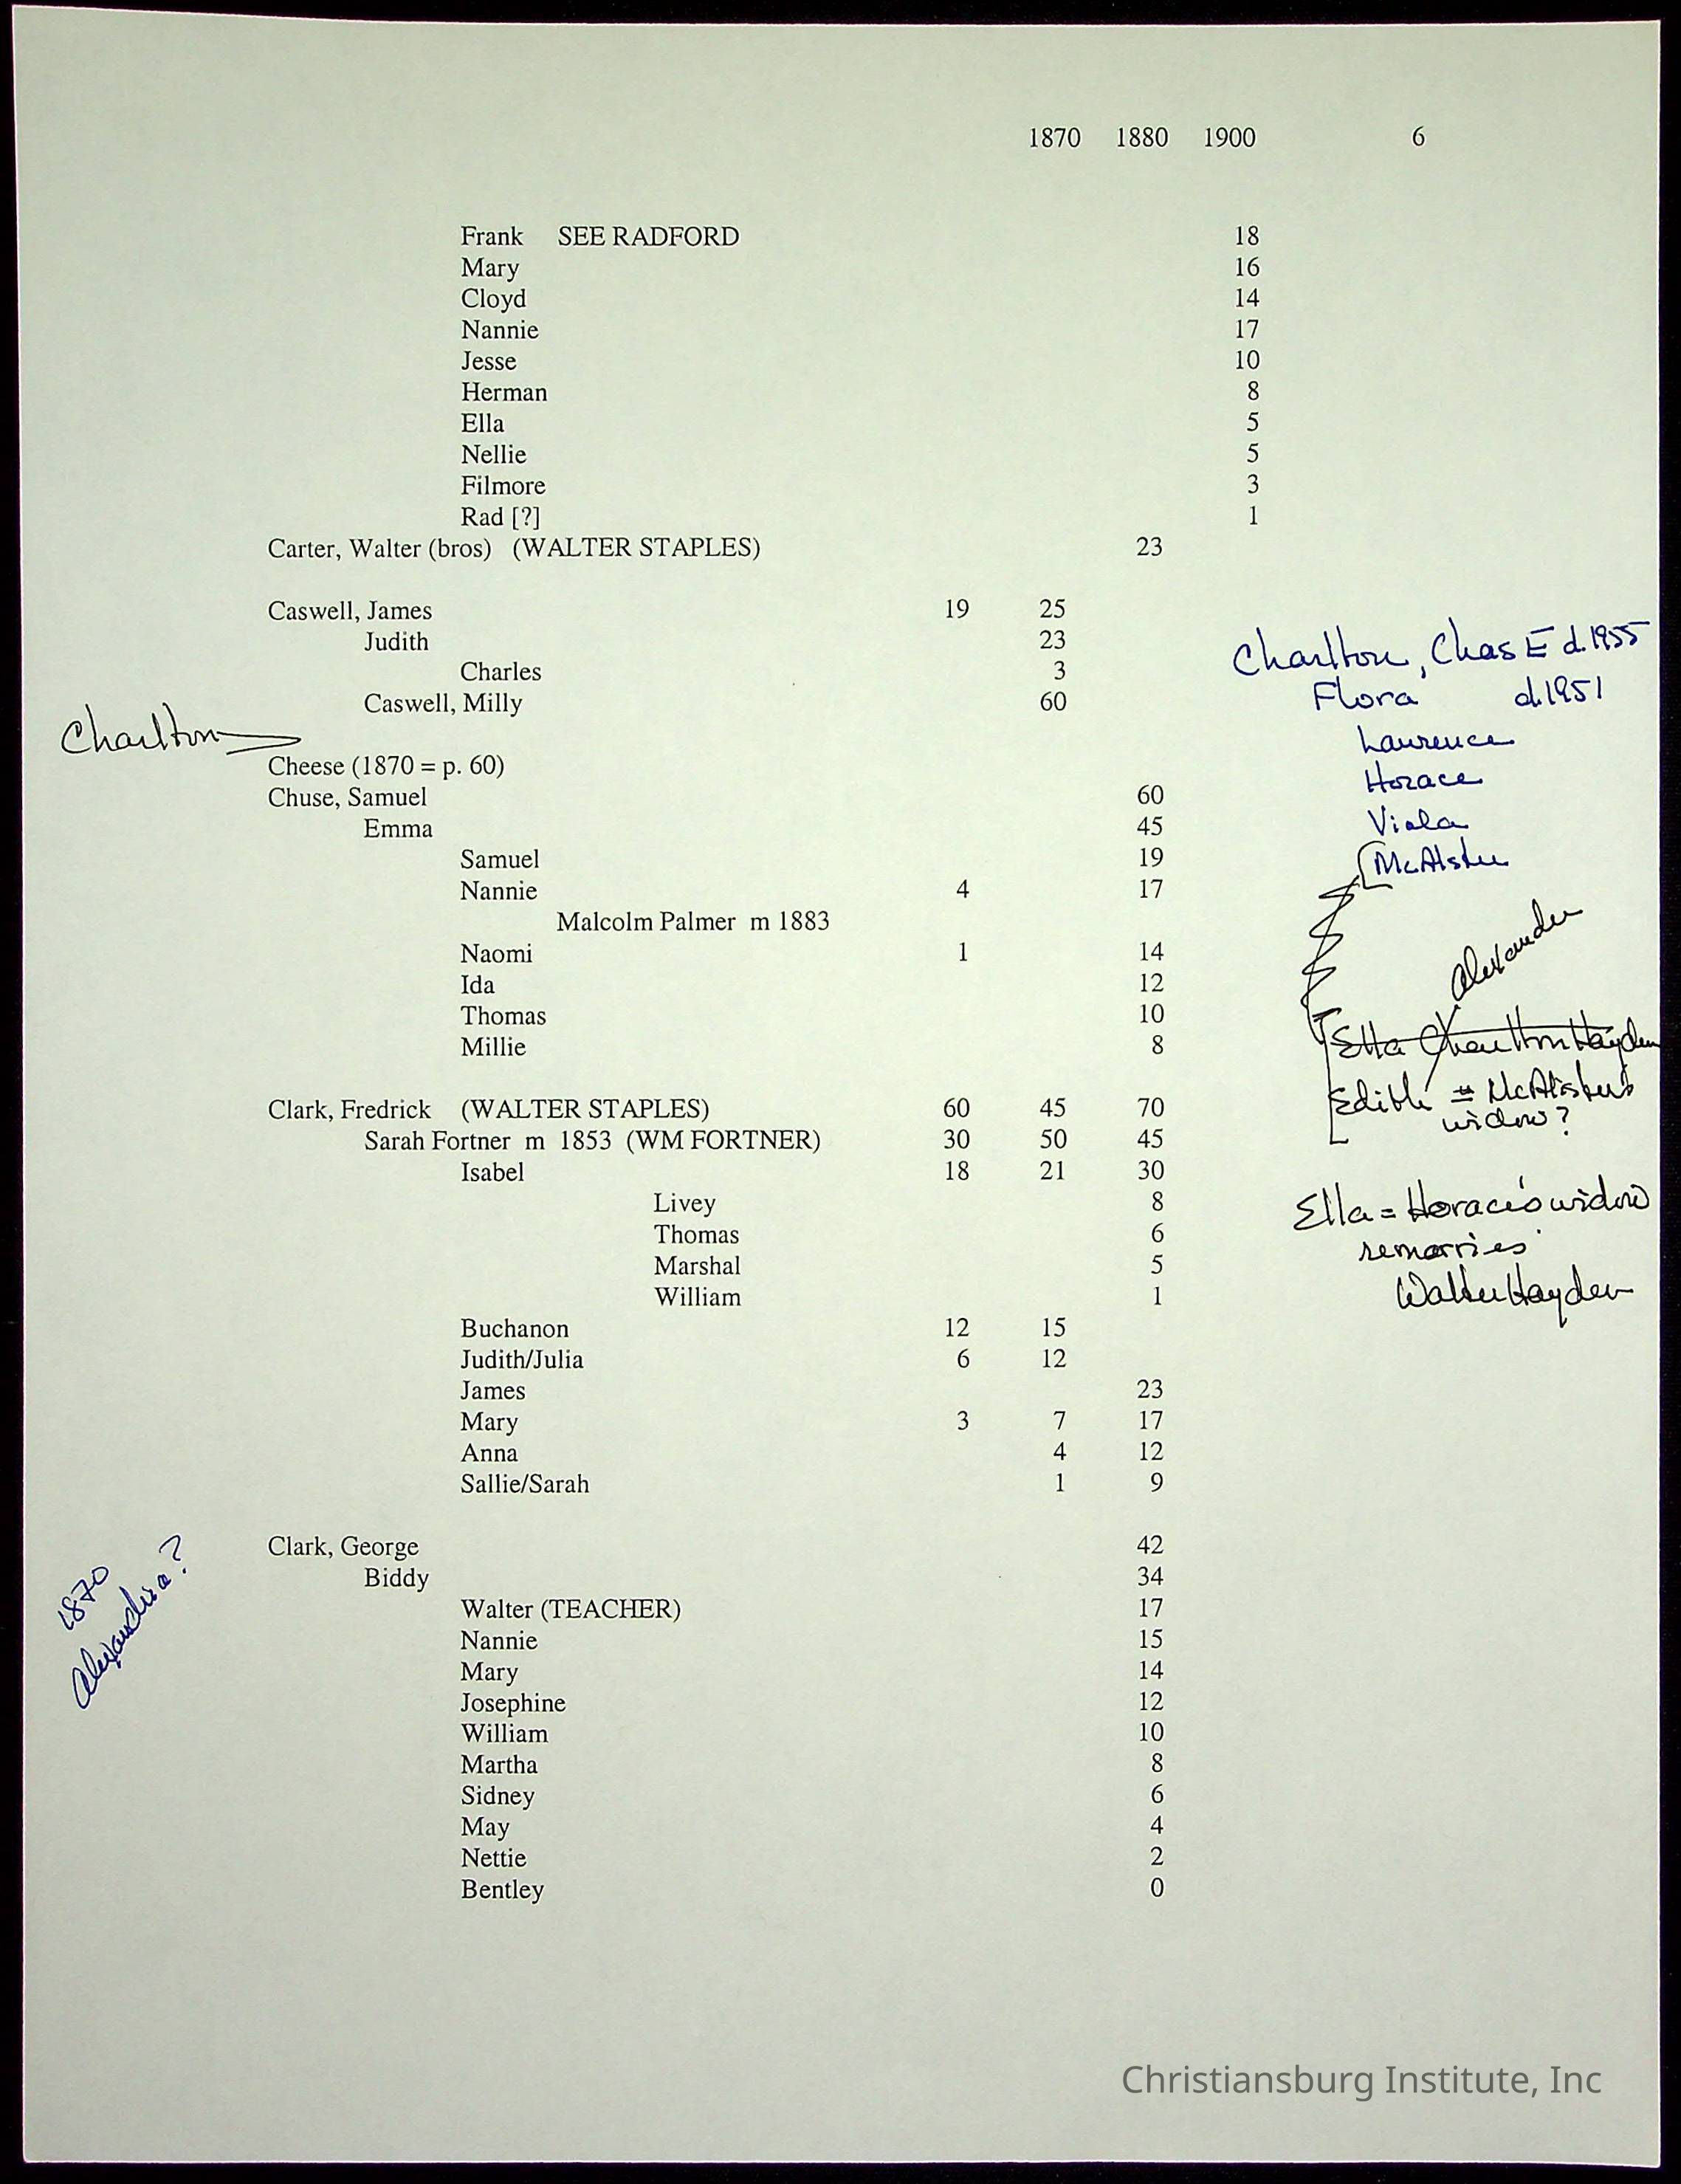 1870 1880 1900 6
Frank SEE RADFORD 18
Mary 16
Cloyd 14
Nannie 17
Jesse 10
Herman 8
Ella 5
Nellie 5
Filmore 3
Rad [?] 1
Carter, Walter (bros) (WALTER STAPLES) 23
Caswell, James 19 25
Judith 23
Charles 3
Caswell, Milly 60
Charlton
Cheese (1870 = p. 60)
Chuse, Samuel 60
Emma 45
Samuel 19
Nannie 4 17
Malcolm Palmer m 1883
Naomi 1 14
Ida 12
Thomas 10
Millie 8
Clark, Fredrick (WALTER STAPLES) 60 45 70
Sarah Fortner m 1853 (WM FORTNER) 30 50 45
Isabel 18 21 30
Livey 8
Thomas 6
Marshal 5
William 1
Buchanon 12 15
Judith/Julia 6 12
James 23
Mary 3 7 17
Anna 4 12
Sallie/Sarah 1 9
Clark, George 42
Biddy 34
Walter (TEACHER) 17
Nannie 15
Mary 14
Josephine 12
William 10
Martha 8
Sidney 6
May 4
Nettie 2
Bentley 0
1870
Alexandria?
Charlton, Chas E d.1955
Flora d.1951
Laurence
Horace
Viola
McAlster
Alexander
Ella Charlton Hayden
Edith = McAlister's
widow?
Ella = Horace's widow
remarries
Walter Hayden
Christiansburg Institute, Inc